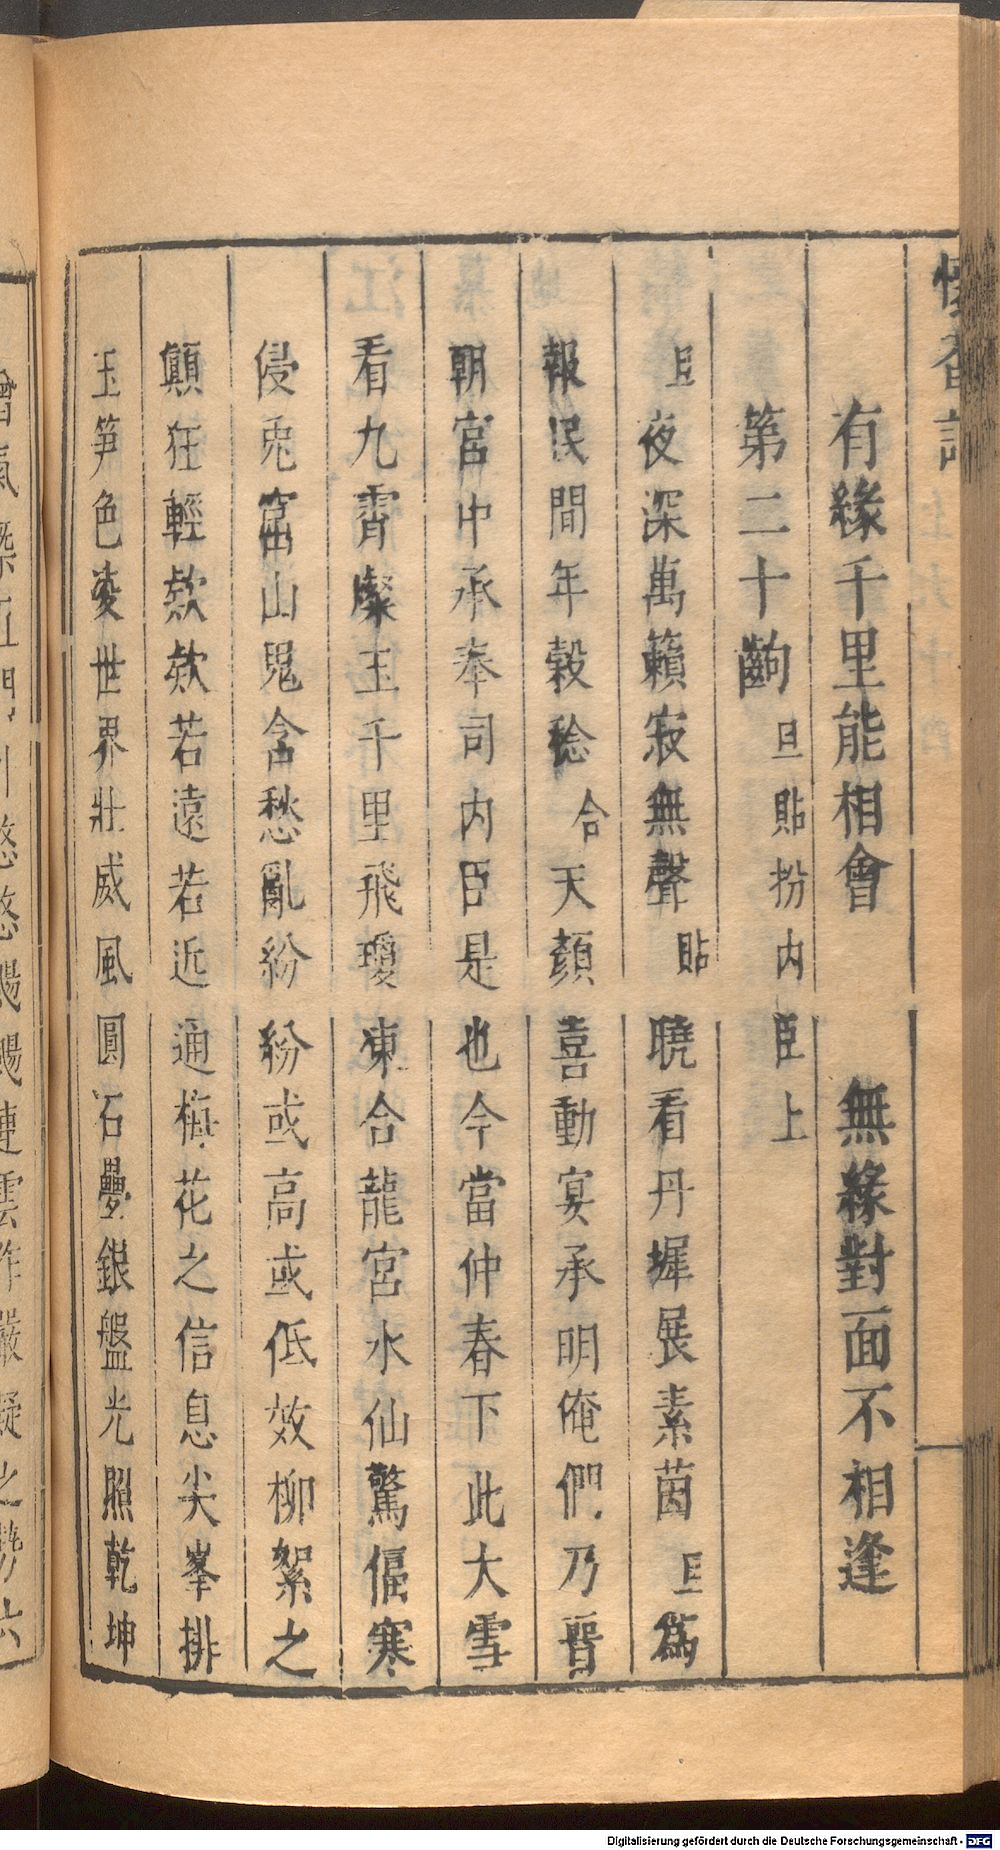 懷香記
有緣千里能相會　無緣對面不相逢
第二十齣 旦貼扮內臣上
旦夜深萬籟寂無聲貼曉看丹墀展素茵旦為
報民間年穀稔合天顏喜動宴承明俺們乃晉
朝宮中承奉司內臣是也今當仲春下此大雪
看九霄燦玉千里飛瓊凍合龍宮水仙驚偪寒
侵兎窟山鬼含愁亂紛紛或高或低效柳絮之
顛狂輕欸欸若遠若近通梅花之信息尖峯排
玉笋色變世界壯威風圓石疊銀盤光照乾坤
Digitalisierung gefördert durch die Deutsche Forschungsgemeinschaft - DFG